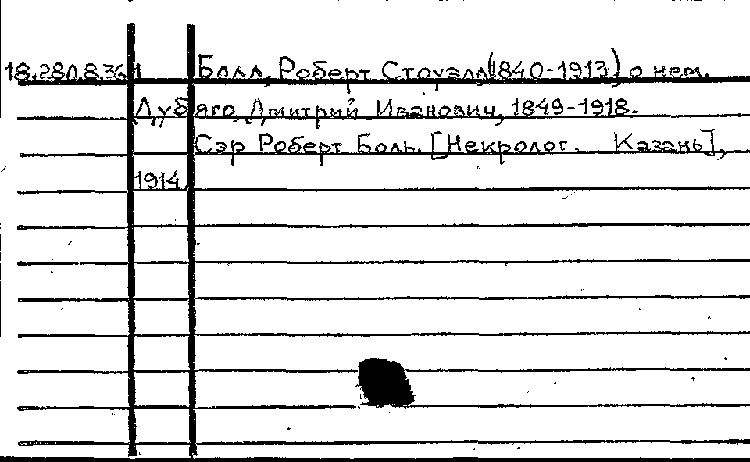 18.280.8.361 Болл, Роберт Стоуэлл (1840-1913) о нем.
Дубяго, Дмитрий Иванович, 1849-1918.
Сэр Роберт Боль. [Некролог. Казань],
1914.